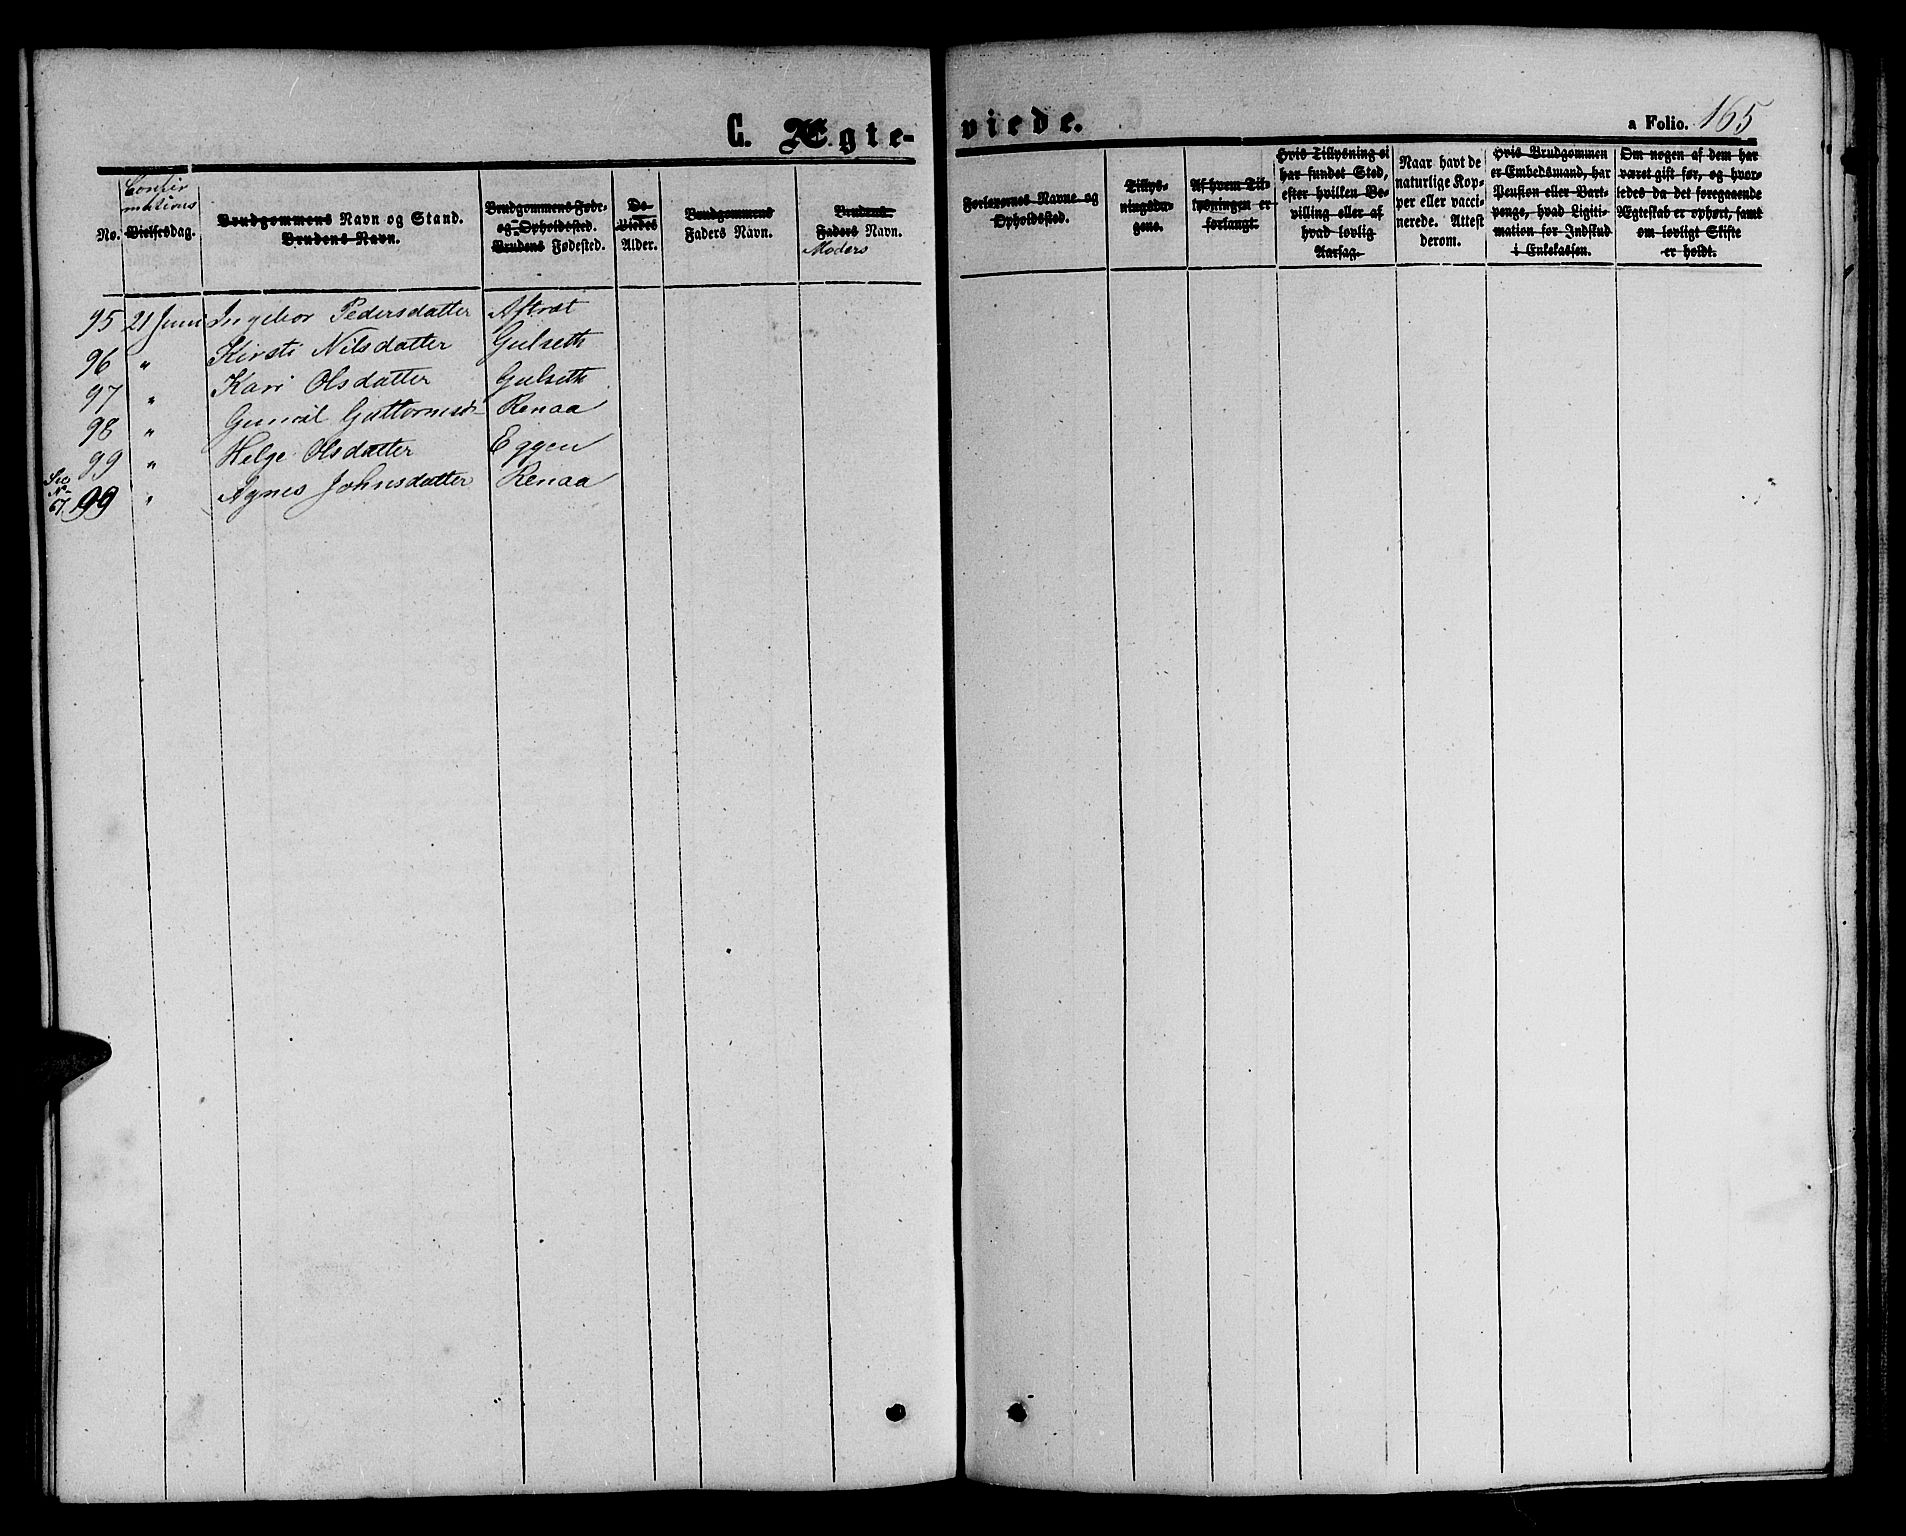 C. Ægte-
viede.
a Folio. 165
No.
Confir
mations
Vielsesdag.
Brudgommens Navn og Stand.
Brudens Navn.
Brudgommens Føde-
og Opholdssted.
Brudens Fødested.
De
Viedes
Alder.
Brudgommens
Faders Navn.
Brudens
Faders Navn.
Moders
Forlovernes Navne og
Opholdssted.
Tillys-
ningsda-
gene.
Af hvem Til-
lysningen er
forlangt.
Hvis Tillysning ei
har fundet Sted,
efter hvilken Be-
villing eller af
hvad lovlig
Aarsag.
Naar havt de
naturlige Kop-
per eller vacci-
nerede. Attest
derom.
Hvis Brudgommen
er Embedsmand, har
Pension eller Vart-
penge, hvad Ligiti-
mation for Indskud
i Enkekassen.
Om nogen af dem har
været gift før, og hvor-
ledes da det foregaaende
Ægteskab er ophørt, samt
om lovligt Skifte
er holdt.
95 21 Juni Ingebor Pedersdatter Aftret
96 " Kirsti Nilsdatter Gulseth
97 " Kari Olsdatter Gulseth
98 " Gunnil Guttormsd Renaa
99 " Helge Olsdatter Eggen
See
No
67. 99 " Agnes Johnsdatter Renaa